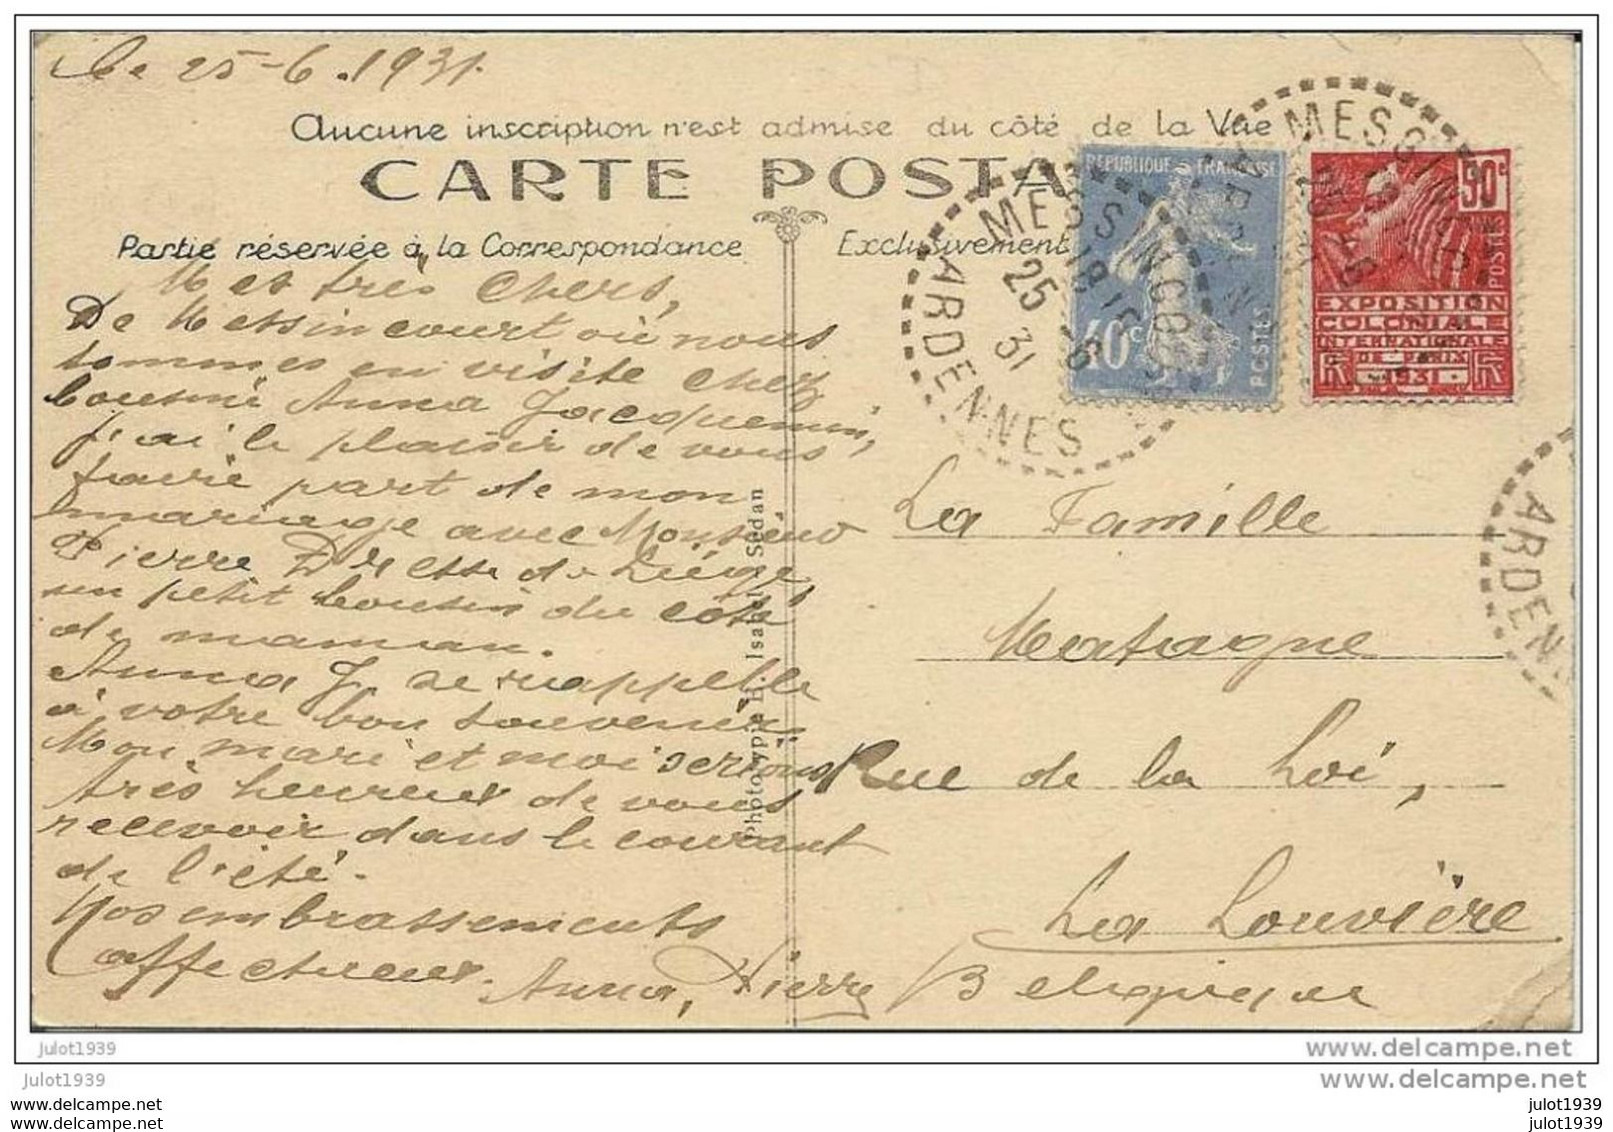 Le 25-6.1931.
Aucune inscription n'est admise du côté de la Vue
CARTE POSTA
Partie réservée à la Correspondance
Exclusivement
Mes très Chers,
De Messincourt où nous
sommes en visite chez
Cousine Anna Jacquemin,
j'ai le plaisir de vous
faire part de mon
mariage avec Monsieur
Pierre Dresse de Liège,
un petit cousin du côté
de maman.
Anna J. se rappelle
à votre bon souvenir.
Mon mari et moi serions
très heureux de vous
recevoir dans le courant
de l'été.
Nos embrassements
affectueux.
Anna, Pierre
Photo
B. Isa
Sedan
REPUBLIQUE FRANÇAISE
40c
POSTES
50c
POSTES
EXPOSITION
COLONIALE
INTERNATIONALE
DE PARIS
1931
RF
MESSINCOURT
25 -6
31
ARDENNES
MESSINCOURT
ARDENN
La Famille
Matagne
Rue de la Loi,
La Louvière
Belgique
julot1939
julot1939
www.delcampe.net
www.delcampe.net
www.delcampe.net
www.delcampe.net
julot1939
julot1939